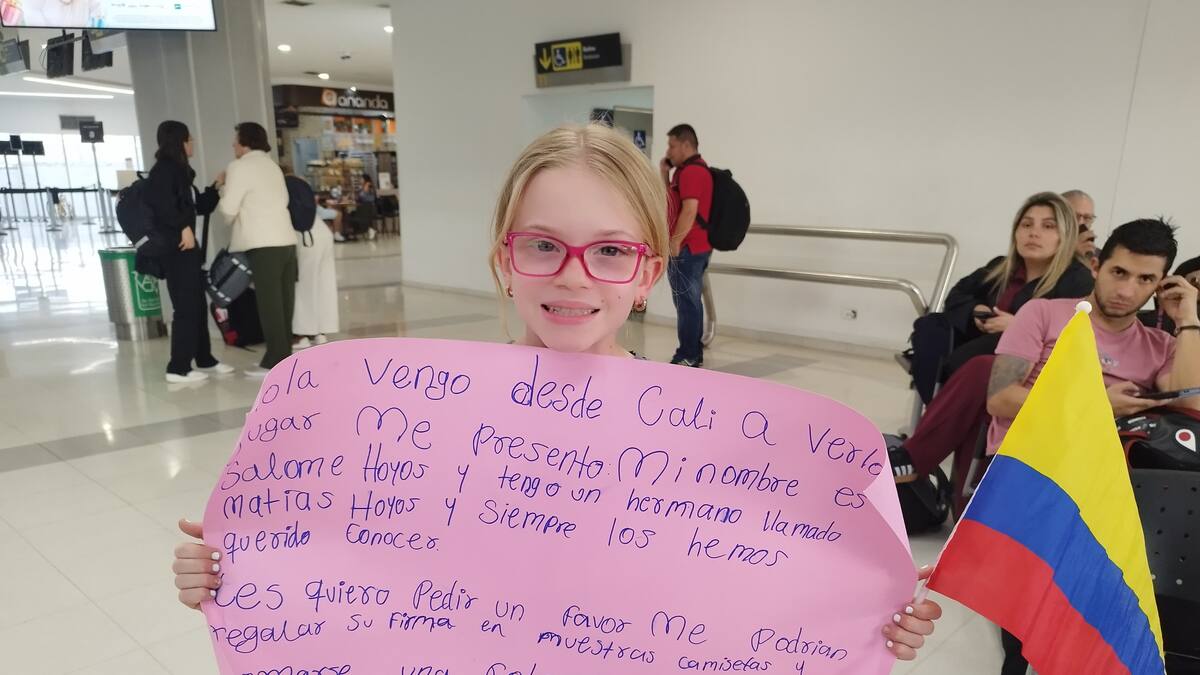 ananda
ola vengo desde Cali a verlo
jugar Me Presento: Mi nombre es
Salome Hoyos y tengo un hermano llamado
Matias Hoyos y siempre los hemos
querido conocer.
Les quiero Pedir un favor Me Podrian
regalar su firma en nuestras camisetas y
una